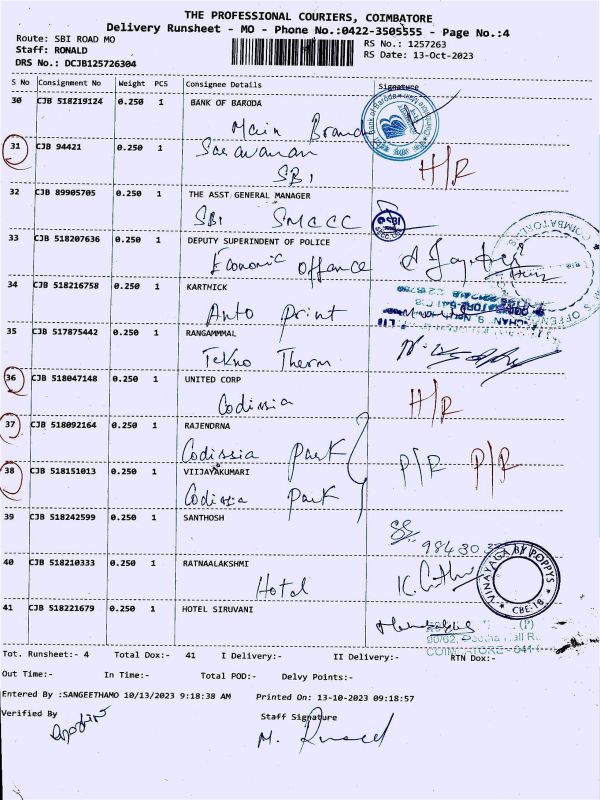 THE PROFESSIONAL COURIERS, COIMBATORE
Delivery Runsheet - MO - Phone No.:0422-3505555 - Page No.:4
Route: SBI ROAD MO
RS No.: 1257263
Staff: RONALD
RS Date: 13-Oct-2023
DRS No.: DCJB125726304
S No Consignment No Weight PCS Consignee Details Signature
30 CJB 518219124 0.250 1 BANK OF BARODA
Main Branch
31 CJB 94421 0.250 1 Saravanan
SBI H/R
32 CJB 89905705 0.250 1 THE ASST GENERAL MANAGER
SBI SMCCC SBI
33 CJB 518207636 0.250 1 DEPUTY SUPERINDENT OF POLICE
Economic Offence
34 CJB 518216758 0.250 1 KARTHICK
Auto Print
35 CJB 517875442 0.250 1 RANGAMMMAL
Tekno Therm
36 CJB 518047148 0.250 1 UNITED CORP
Codissia H/R
37 CJB 518092164 0.250 1 RAJENDRNA
Codissia Park
38 CJB 518151013 0.250 1 VIIJAYAKUMARI P/R P/R
Codissia Park
39 CJB 518242599 0.250 1 SANTHOSH
40 CJB 518210333 0.250 1 RATNAALAKSHMI
Hotel
VINAYAGA BY POPPYS
CBE-18
41 CJB 518221679 0.250 1 HOTEL SIRUVANI
Tot. Runsheet:- 4 Total Dox:- 41 I Delivery:- II Delivery:- RTN Dox:-
Out Time:- In Time:- Total POD:- Delvy Points:-
Entered By :SANGEETHAMO 10/13/2023 9:18:38 AM Printed On: 13-10-2023 09:18:57
Verified By Staff Signature